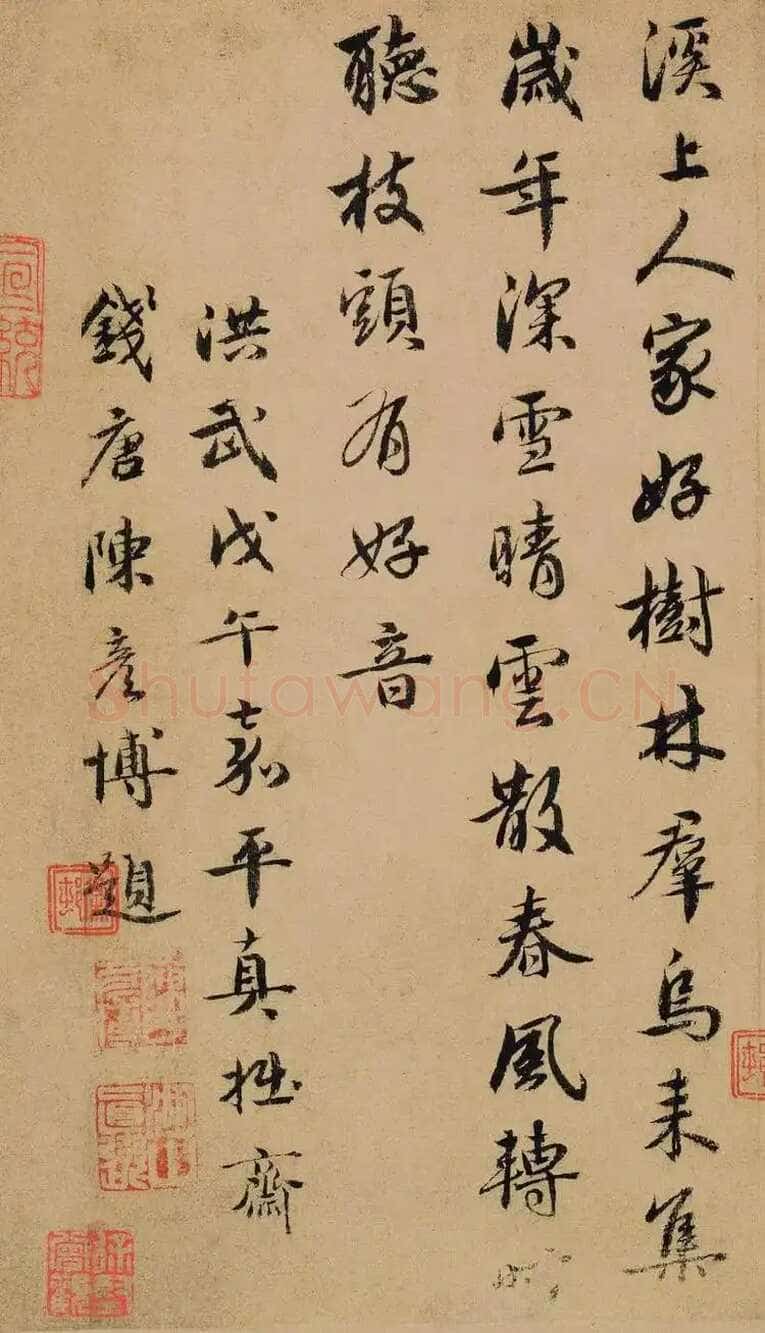 溪上人家好樹林羣烏来集
歲年深雪晴雲散春風轉
聽枝頭有好音
洪武戊午嘉平真拙齋
錢唐陳彦博題
Shufawang.CN